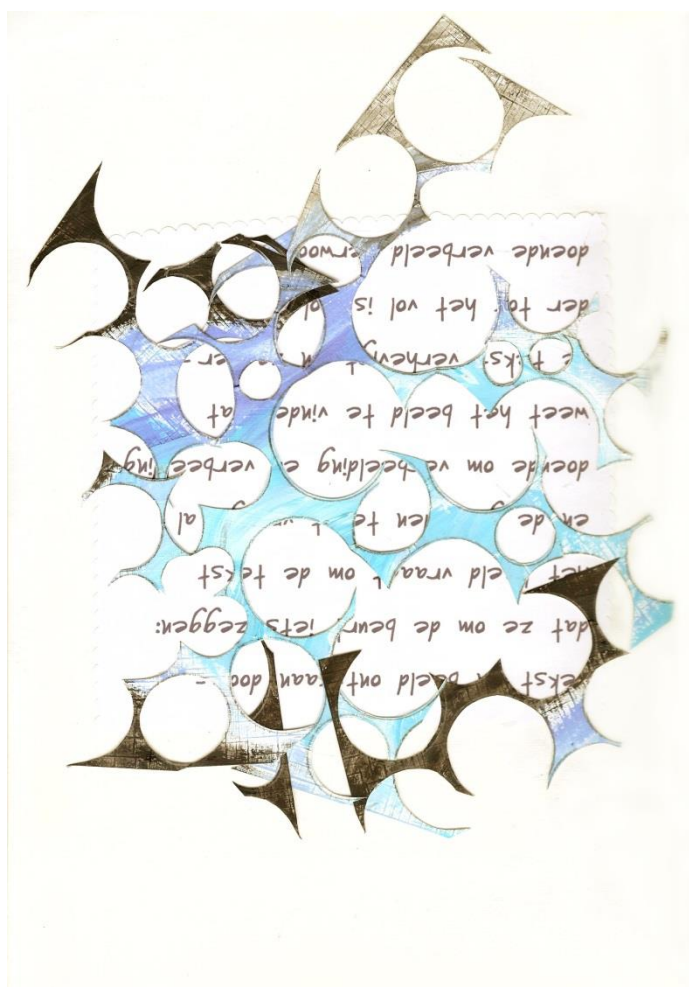 tekst beeld ont aan doo -
dat ze om de beur iets zeggen:
het eld vraa om de tekst
en de len te al
doende om ve beelding e verbee ing
weet het beeld te vinde at
tekst- verhev er-
der to het vol is ol
doende verbeeld erwoo